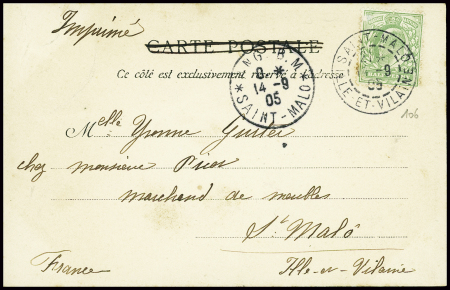 Imprimé
CARTE POSTALE
Ce côté est exclusivement réservé à l'adresse
NG. B.M.
14-9
05
*SAINT-MALO*
SAINT-MALO
9
05
ILLE-ET-VILAINE
106
Melle Yvonne
chez monsieur
marchand de meubles
St Malô
France
Ille-et-Vilaine